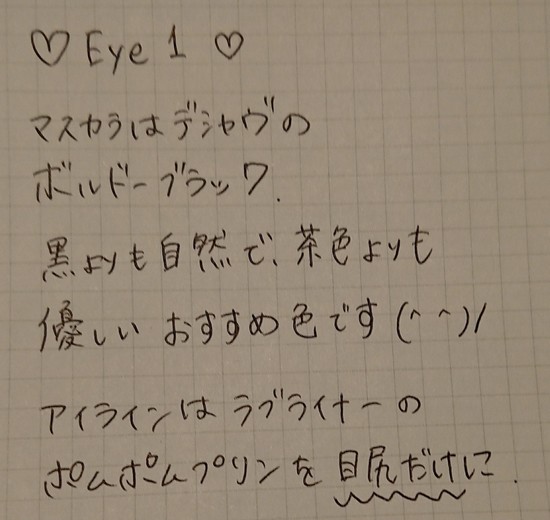 ♡ Eye 1 ♡
マスカラはデジャヴの
ボルドーブラック.
黒よりも自然で、茶色よりも
優しい おすすめ色です(^ ^)/
アイラインは ラブライナーの
ポムポムプリンを 目尻だけに.